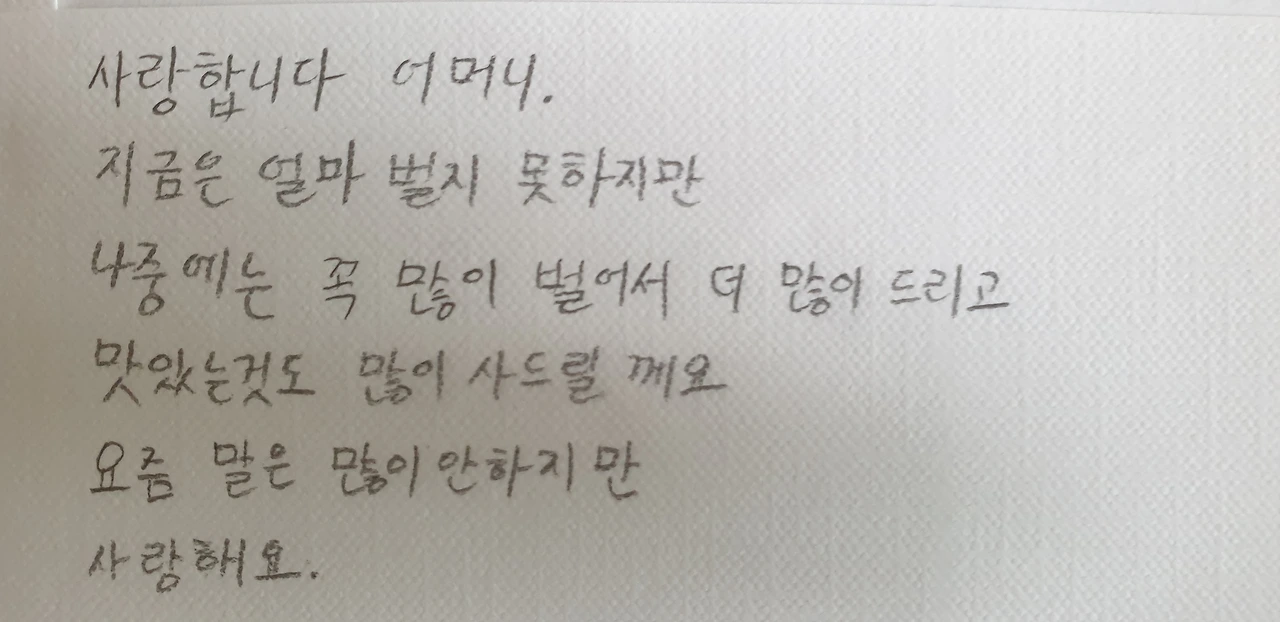 사랑합니다 어머니.
지금은 얼마 벌지 못하지만
나중에는 꼭 많이 벌어서 더 많이 드리고
맛있는것도 많이 사드릴 께요
요즘 말은 많이 안하지만
사랑해요.